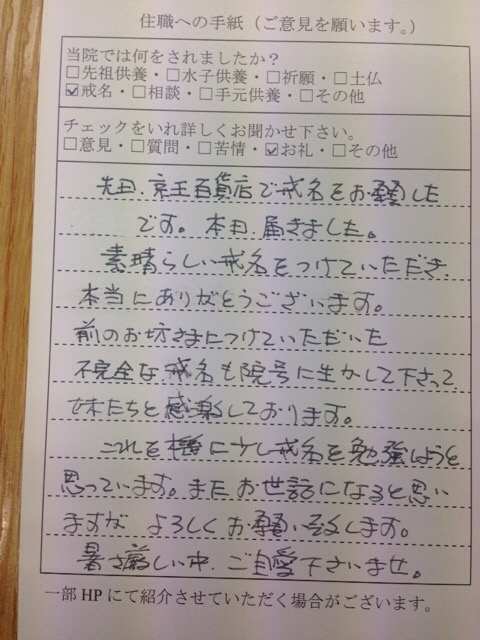 住職への手紙（ご意見を願います。）
当院では何をされましたか？
□先祖供養・□水子供養・□祈願・□土仏
☑戒名・□相談・□手元供養・□その他
チェックをいれ詳しくお聞かせ下さい。
□意見・□質問・□苦情・☑お礼・□その他
先日、京王百貨店で戒名をお願した
です。本日、届きました。
素晴らしい戒名をつけていただき
本当にありがとうございます。
前のお坊さまにつけていただいた
不完全な戒名も院号に生かして下さって
妹たちと感激しております。
これを機に少し戒名を勉強しようと
思っています。またお世話になると思い
ますが よろしくお願い致します。
暑さ厳しい中、ご自愛下さいませ。
一部HPにて紹介させていただく場合がございます。